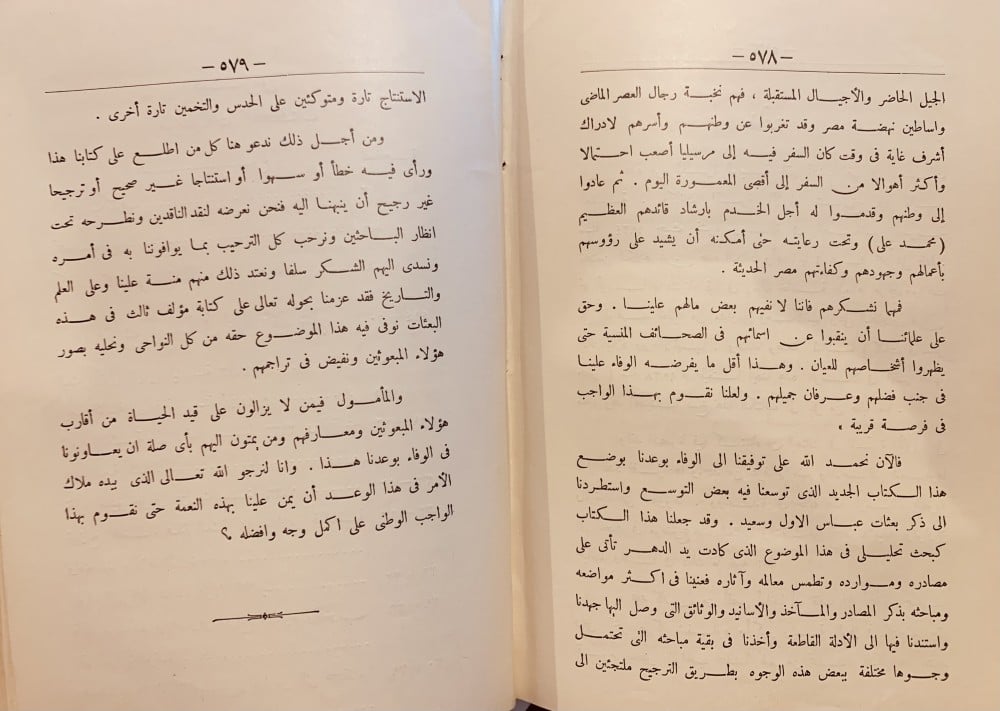 — ٥٧٨ —
الجيل الحاضر والأجيال المستقبلة ، فهم نخبة رجال العصر الماضى
واساطين نهضة مصر وقد تغربوا عن وطنهم وأسرهم لادراك
أشرف غاية فى وقت كان السفر فيه إلى مرسيليا أصعب احتمالا
وأكثر أهوالا من السفر إلى أقصى المعمورة اليوم . ثم عادوا
إلى وطنهم وقدموا له أجل الخدم بارشاد قائدهم العظيم
(محمد على) وتحت رعايته حتى أمكنه أن يشيد على رؤوسهم
بأعمالهم وجهودهم وكفاءتهم مصر الحديثة .
فمهما نشكرهم فاننا لا نفيهم بعض مالهم علينا . وحق
على علمائنا أن ينقبوا عن اسمائهم فى الصحائف المنسية حتى
يظهروا أشخاصهم للعيان . وهذا أقل ما يفرضه الوفاء علينا
فى جنب فضلهم وعرفان جميلهم . ولعلنا نقوم بهذا الواجب
فى فرصة قريبة .
فالآن نحمد الله على توفيقنا الى الوفاء بوعدنا بوضع
هذا الكتاب الجديد الذى توسعنا فيه بعض التوسع واستطردنا
الى ذكر بعثات عباس الاول وسعيد . وقد جعلنا هذا الكتاب
كبحث تحليلى فى هذا الموضوع الذى كادت يد الدهر تأتى على
مصادره وموارده وتطمس معالمه وآثاره فعنينا فى اكثر مواضعه
ومباحثه بذكر المصادر والمآخذ والأسانيد والوثائق التى وصل اليها جهدنا
واستندنا فيها الى الأدلة القاطعة وأخذنا فى بقية مباحثه التى تحتمل
وجوها مختلفة ببعض هذه الوجوه بطريق الترجيح ملتجئين الى
— ٥٧٩ —
الاستنتاج تارة ومتوكئين على الحدس والتخمين تارة أخرى .
ومن أجل ذلك ندعو هنا كل من اطلع على كتابنا هذا
ورأى فيه خطأ أو سهوا أو استنتاجا غير صحيح أو ترجيحا
غير رجيح أن ينبهنا اليه فنحن نعرضه لنقد الناقدين ونطرحه تحت
انظار الباحثين ونرحب كل الترحيب بما يوافوننا به فى أمره
ونسدى اليهم الشكر سلفا ونعتد ذلك منهم منة علينا وعلى العلم
والتاريخ فقد عزمنا بحوله تعالى على كتابة مؤلف ثالث فى هذه
البعثات نوفى فيه هذا الموضوع حقه من كل النواحى ونحليه بصور
هؤلاء المبعوثين ونفيض فى تراجمهم .
والمأمول فيمن لا يزالون على قيد الحياة من أقارب
هؤلاء المبعوثين ومعارفهم ومن يمتون اليهم بأى صلة ان يعاونونا
فى الوفاء بوعدنا هذا . وانا لنرجو الله تعالى الذى بيده ملاك
الأمر فى هذا الوعد أن يمن علينا بهذه النعمة حتى نقوم بهذا
الواجب الوطنى على اكمل وجه وافضله ؟